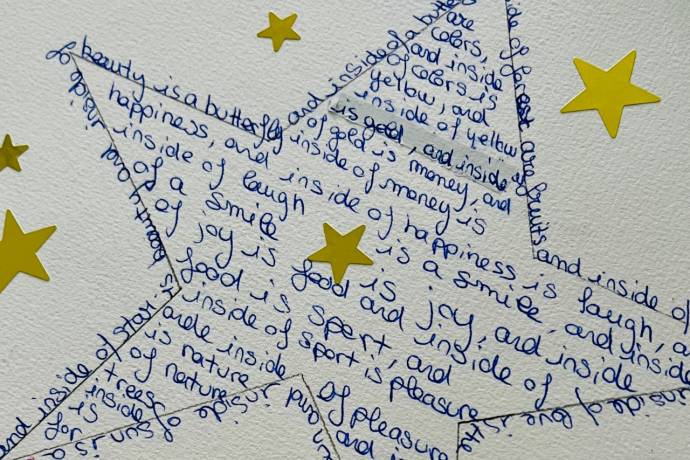 of beauty is a butterfly and inside of a butt
are
colors,
and inside
of colors is
yellow, and
inside of yellow
is gold, and inside
of gold is money, and
inside of money is
happiness, and
inside of laugh
inside of happiness is laugh, a
of a smile
is a smile, and inside
of joy is
food
is joy, and inside
food is sport, and
and inside of
inside of sport is pleasure
and inside
is nature
of nature
of pleasure
and in
trees
inside
is
for
sun is
and inside of star is
beauty and inside
ide of forest are fruits and inside of
inside of love is the
and inside